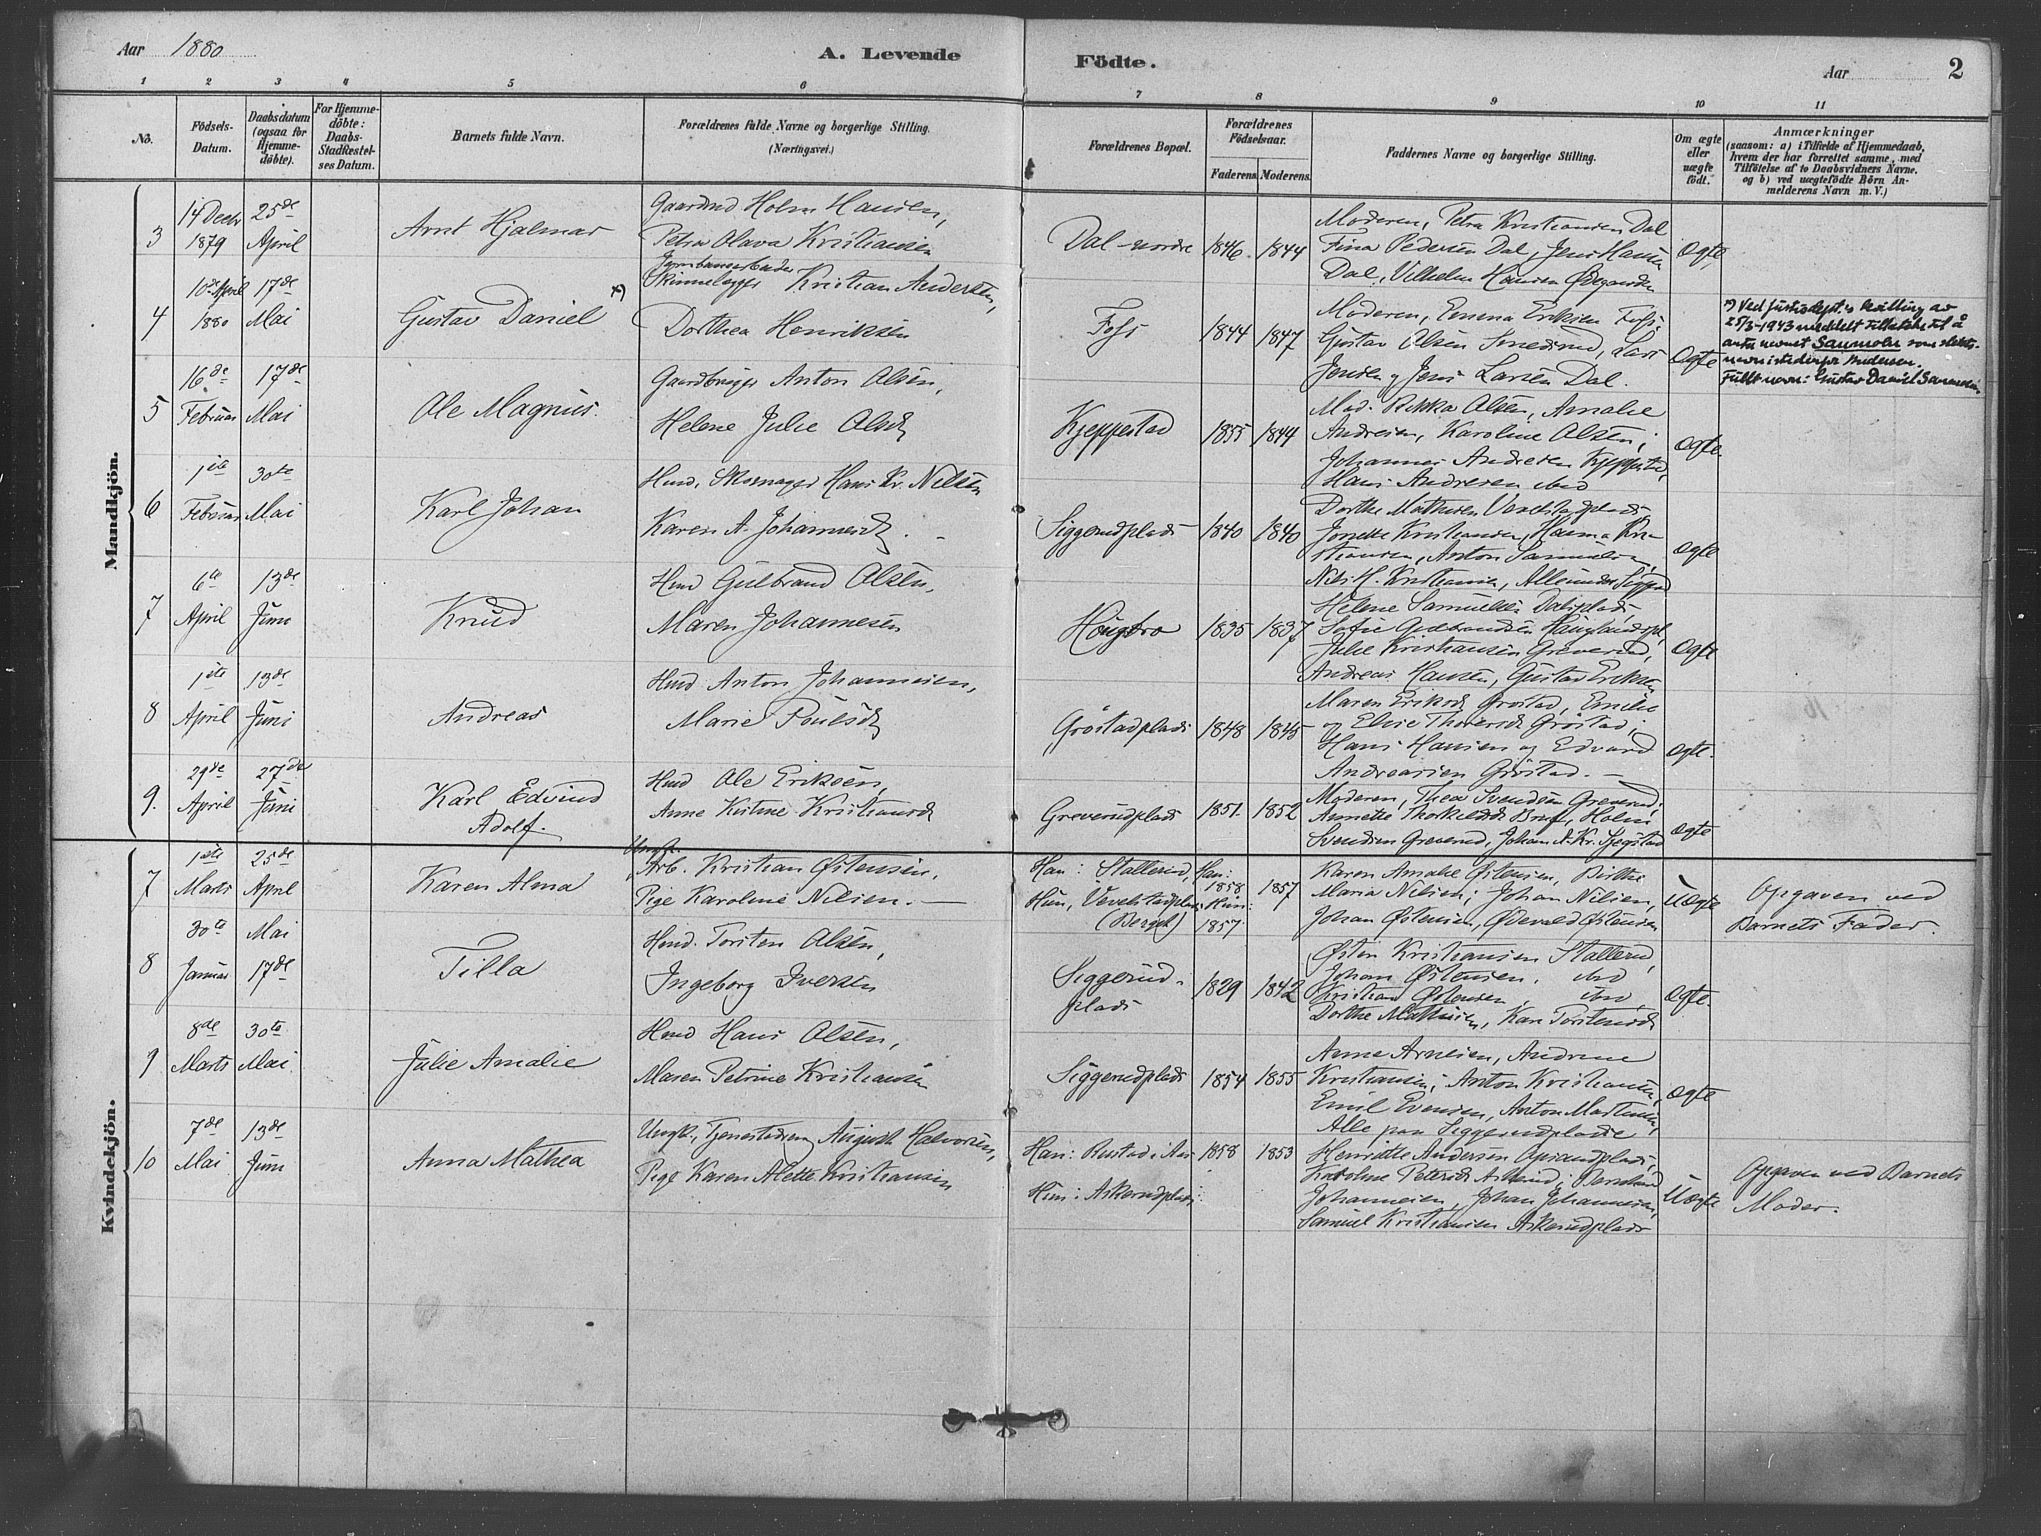 Aar 1880
A. Levende Födte.
Aar
2
1 2 3 4 5 6 7 8 9 10 11
No.
Födsels-
Datum.
Daabsdatum
(ogsaa for
Hjemme-
döbte).
For Hjemme-
döbte:
Daabs-
Stadfestel-
ses Datum.
Barnets fulde Navn.
Forældrenes fulde Navne og borgerlige Stilling.
(Næringsvei.)
Forældrenes Bopæl.
Forældrenes
Födselsaar.
Faderens Moderens.
Faddernes Navne og borgerlige Stilling.
Om ægte
eller
uægte
födt.
Anmærkninger
(saasom: a) i Tilfælde af Hjemmedaab,
hvem der har forrettet samme, med
Tilföielse af to Daabsvidners Navne.
og b) ved uægtefödte Börn An-
melderens Navn m. V.)
Mandkjön.
3
14 Decbr
1879
25de
April
Arnt Hjalmar
Gaardmd Holm Hansen,
Petra Olava Kristiansen
Dal nordre
1846 1844
Moderen, Petra Kristiansen Dal
Tina Pedersen Dal, Jens Hansen
Dal, Vilhelm Hansen Ødegaarden
Ægte
4
10de April
1880
17de
Mai
Gustav Daniel x)
Jernbanearbeider
Skinnelægger Kristian Andersen,
Dorthea Henriksen
Foss
1844 1847
Moderen, Emma Eriksen Foss,
Gustav Olsen Smedsrud, Lars
Jensen og Jens Larsen Dal.
Ægte
x) Ved justisdept.s bevilling av
25/3-1943 meddelt tillatelse til å
anta navnet Sanmoen som slekts-
navn istedenfor Andersen.
Fullt navn: Gustav Daniel Sanmoen.
5
16de
Februar
17de
Mai
Ole Magnus.
Gaardbruger Anton Olsen,
Helene Julie Olsd
Kjeppestad
1855 1844
Mod. Rikka Olsen, Amalie
Andresen, Karoline Olsen;
Johannes Andresen Kjeppestad,
Hans Andresen ibid
Ægte.
6
1ste
Februar
30te
Mai
Karl Johan
Husm. Skomager Hans Kr. Nilsen
Karen A. Johannesd.
Siggerudplads
1840 1840
Dorthe Mathisen Vevelstadplads
Jonette Kristiansen, Hanna Kri-
stiansen, Anton Samuelsen,
Nils H. Kristiansen, Alle under Siggerud
Ægte
7
6te
April
13de
Juni
Knud
Husmd Gulbrand Olsen,
Maren Johannesen
Haugbro
1835 1837
Helene Samuelsen Dalsplads
Sofie Gulbrandsen Hauglandspl,
Julie Kristiansen Greverud,
Andreas Hansen, Gustav Eriksen
Ægte
8
1ste
April
13de
Juni
Andreas
Husmd Anton Johannesen,
Marie Poulsd
Grøstadplads
1848 1845
Maren Eriksd Grøstad, Emilie
og Elise Thoresd Grøstad;
Hans Hansen og Edvard
Andreasen Grøstad.
Ægte.
9.
29de
April
27de
Juni
Karl Edvind
Adolf.
Husmd Ole Eriksen,
Anne Kristine Kristiansd
Greverudplads
1851. 1852
Moderen, Thea Svendsen Greverud,
Annette Thorkildsd Bru, Holm
Svendsen Greverud, Johan A. Kr. Sjegstad
Ægte
Kvindekjön.
7
1ste
Marts
25de
April
Karen Alma
Ungk.
Arb. Kristian Østensen,
Pige Karoline Nilsen.
Han: Stallerud,
Hun, Vevelstadplads
(Berget)
Han:
1858
Hun:
1857.
1857
Karen Amalie Østensen, Birthe
Maria Nilsen; Johan Nilsen,
Johan Østensen, Ødevald Østensen
Uægte
Opgaven ved
Barnets Fader.
8
30te
Januar
Mai
17de
Tilla
Husmd. Torsten Olsen,
Ingeborg Iversen
Siggerud-
plads
1829 1842
Østen Kristiansen Stallerud,
Johan Østensen, ibid
Kristian Østensen, ibid,
Dorthe Mathisen, Kari Torstensd
Ægte.
9
8de
Marts
30te
Mai
Julie Amalie
Husmd Hans Olsen,
Maren Petrine Kristiansen
Siggerudplads
1854 1855
Anne Arnesen, Andrine
Kristiansen; Anton Kristiansen,
Emil Evensen, Anton Martinsen,
Alle paa Siggerudplads
Ægte
10
7de
Mai
13de
Juni
Anna Mathea
Ungk., Tjenestedreng August Halvorsen,
Pige Karen Alette Kristiansen
Han: Rustad i Aas
Hun: Askerudplads
1858 1853
Henriette Andersen
Karoline Petersd Askerud; Bernhard
Johannesen, Johan Johannesen,
Samuel Kristiansen Askerudplads
Uægte
Opgaven ved Barnets
Moder.